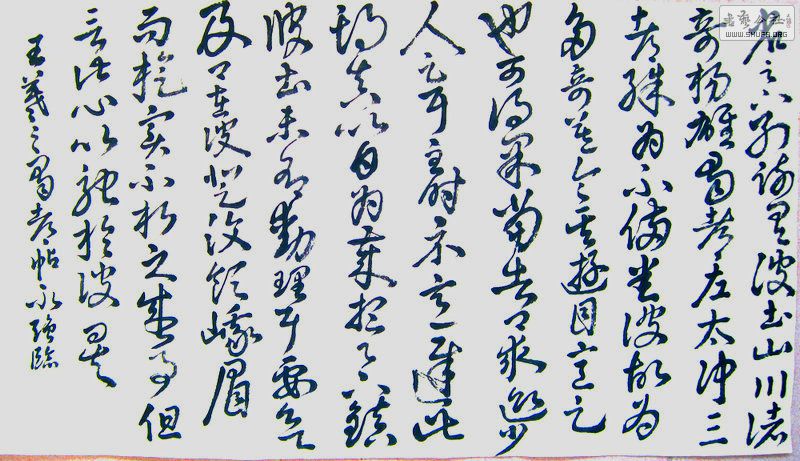 省足下别疏具彼土山川诸
奇揚雄蜀都左太冲三
都殊为不備悉彼故为
多奇益令其遊目意足
也可得果当告卿求迎少
人足耳至时示意遲此
期真以日为歲想足下鎮
彼土未有動理耳要欲
及卿在彼登汶領峨眉
而旋实不朽之盛事但
言此心以馳於彼矣
王羲之蜀都帖永強臨
書藝公社
WWW.SHUFA.ORG